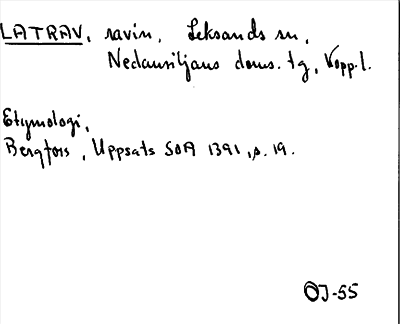 LATRAV, ravin, Leksands sn,
Nedansiljans doms. tg, Kopp.l.
Etymologi,
Bergfors, Uppsats SOA 1391, s. 19.
OJ-55